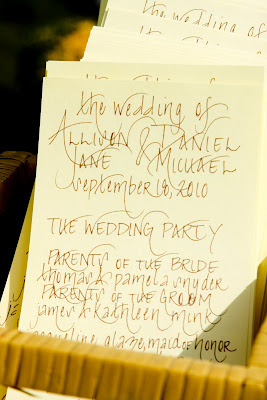 the wedding of
ALLISON & DANIEL
JANE MICHAEL
september 18, 2010
THE WEDDING PARTY
PARENTS OF THE BRIDE
thomas & pamela snyder
PARENTS OF THE GROOM
james & kathleen mink
glaze, maid of honor